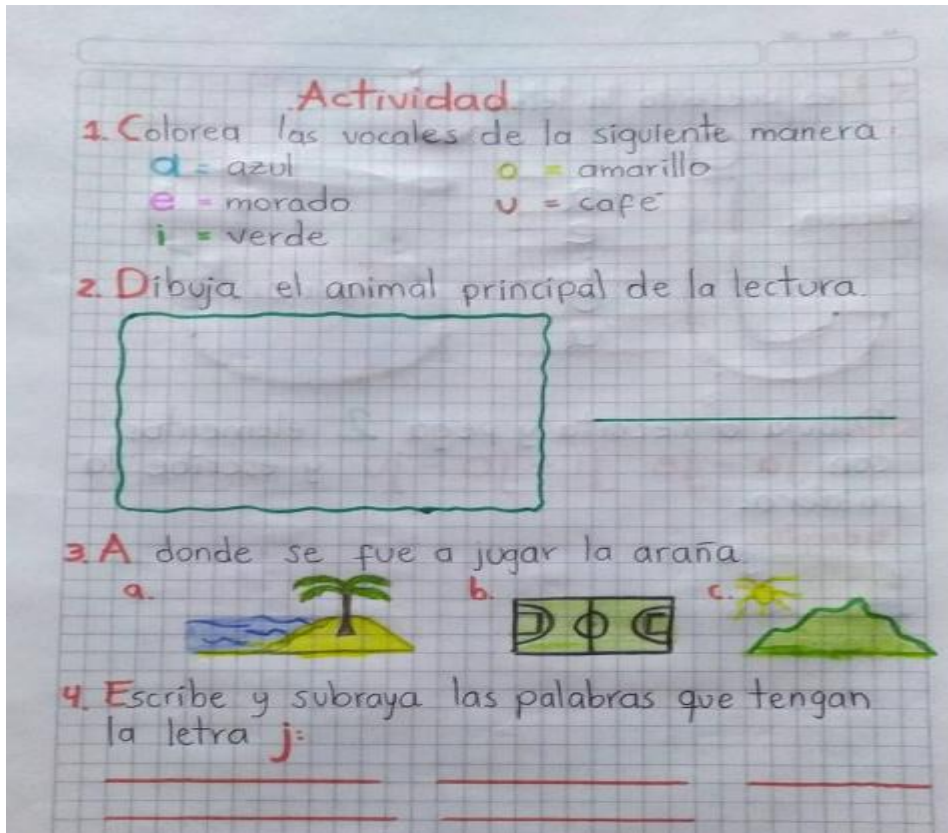 Actividad
1. Colorea las vocales de la siguiente manera:
a = azul o = amarillo
e = morado u = café
i = verde
2. Dibuja el animal principal de la lectura.
3. A donde se fue a jugar la araña
a. b. c.
4. Escribe y subraya las palabras que tengan
la letra j: